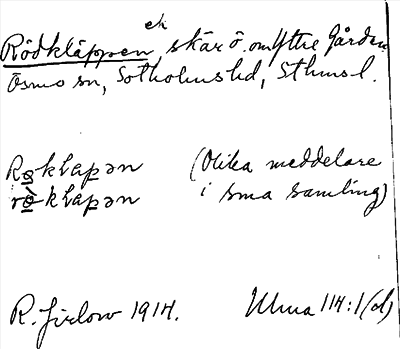 ek
Rödkläppen, skär ö. om Yttre Gården
Ösmo sn, Sotholms hd, Sthms l.
Røklapən (Olika meddelare
rø̀klapən i sma samling)
R. Jirlow 1914. Ulma 114:1(d)